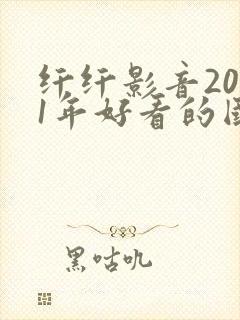 纤纤影音20
1年好看的国
黑咕叽